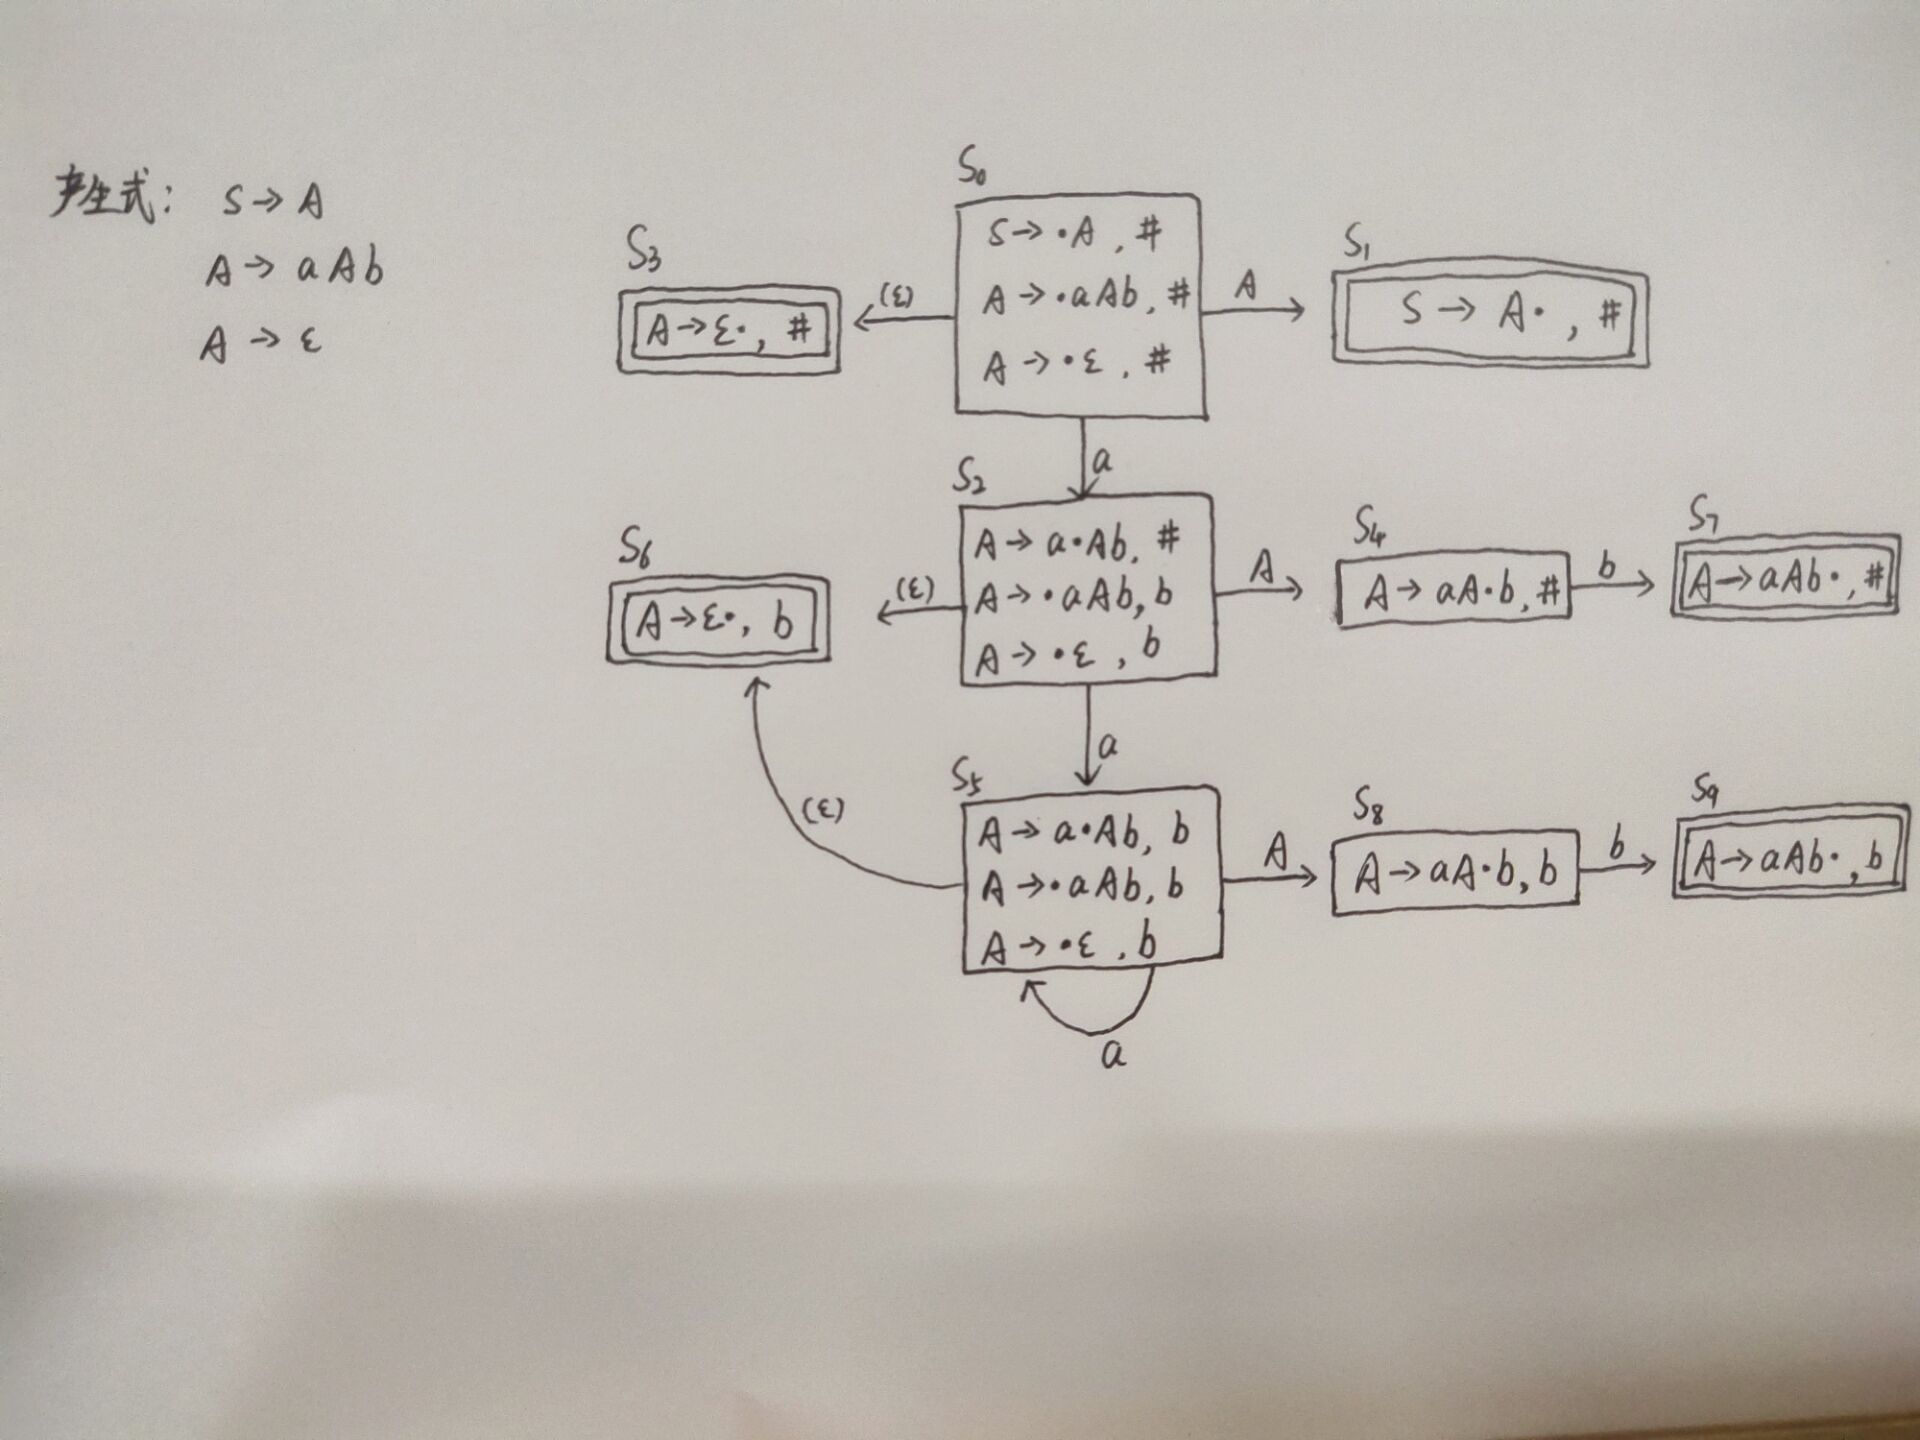 产生式: S→A
A→aAb
A→ε
S0
S→·A, #
A→·aAb, #
A→·ε, #
S3
A→ε·, #
(ε)
A
S1
S→A·, #
a
S2
A→a·Ab, #
A→·aAb, b
A→·ε, b
S6
A→ε·, b
(ε)
A
S4
A→aA·b, #
b
S7
A→aAb·, #
a
S5
A→a·Ab, b
A→·aAb, b
A→·ε, b
(ε)
A
S8
A→aA·b, b
b
S9
A→aAb·, b
a